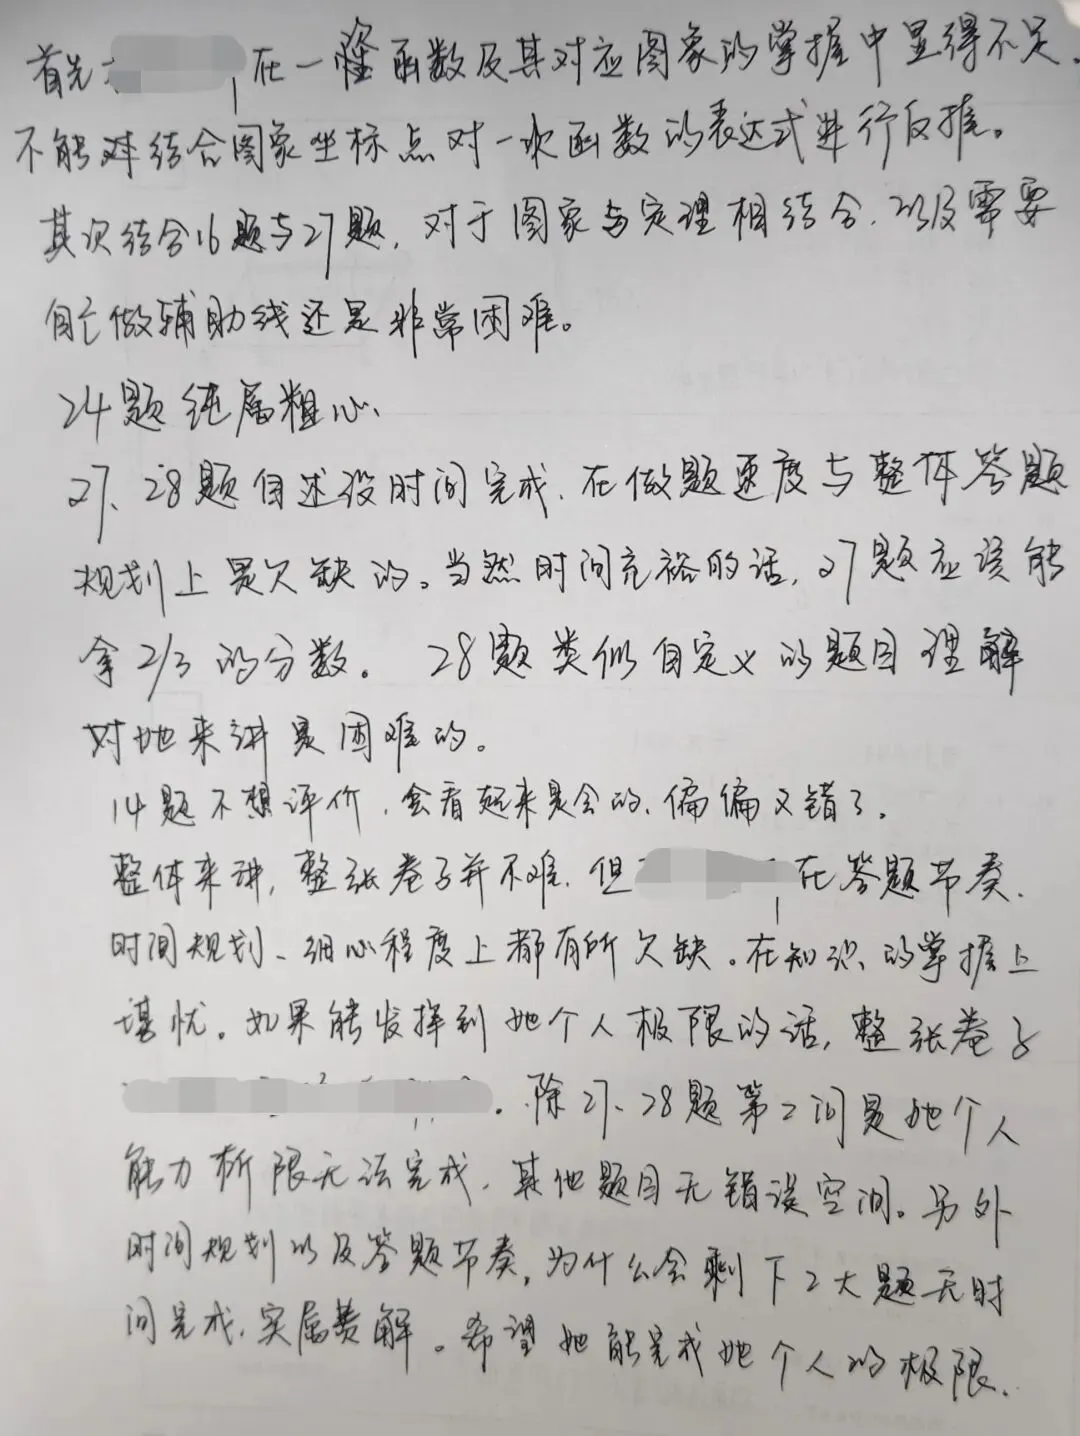 首先 在一次函数及其对应图象的掌握中显得不足.
不能对结合图象坐标点对一次函数的表达式进行反推。
其次结合16题与27题,对于图象与定理相结合,以及需要
自己做辅助线还是非常困难。
24题纯属粗心、
27、28题自述没时间完成、在做题速度与整体答题
规划上是欠缺的。当然时间充裕的话,27题应该能
拿2/3的分数。 28题类似自定义的题目理解
对她来讲是困难的。
14题不想评价,会看起来是会的、偏偏又错了。
整体来讲,整张卷子并不难、但 在答题节奏、
时间规划、细心程度上都有所欠缺。在知识的掌握上
堪忧。如果能发挥到她个人极限的话,整张卷子
。除27、28题第2问是她个人
能力极限无法完成,其他题目无错误空间。另外
时间规划以及答题节奏,为什么会剩下2大题无时
间完成、实属费解。希望她能完成她个人的极限.